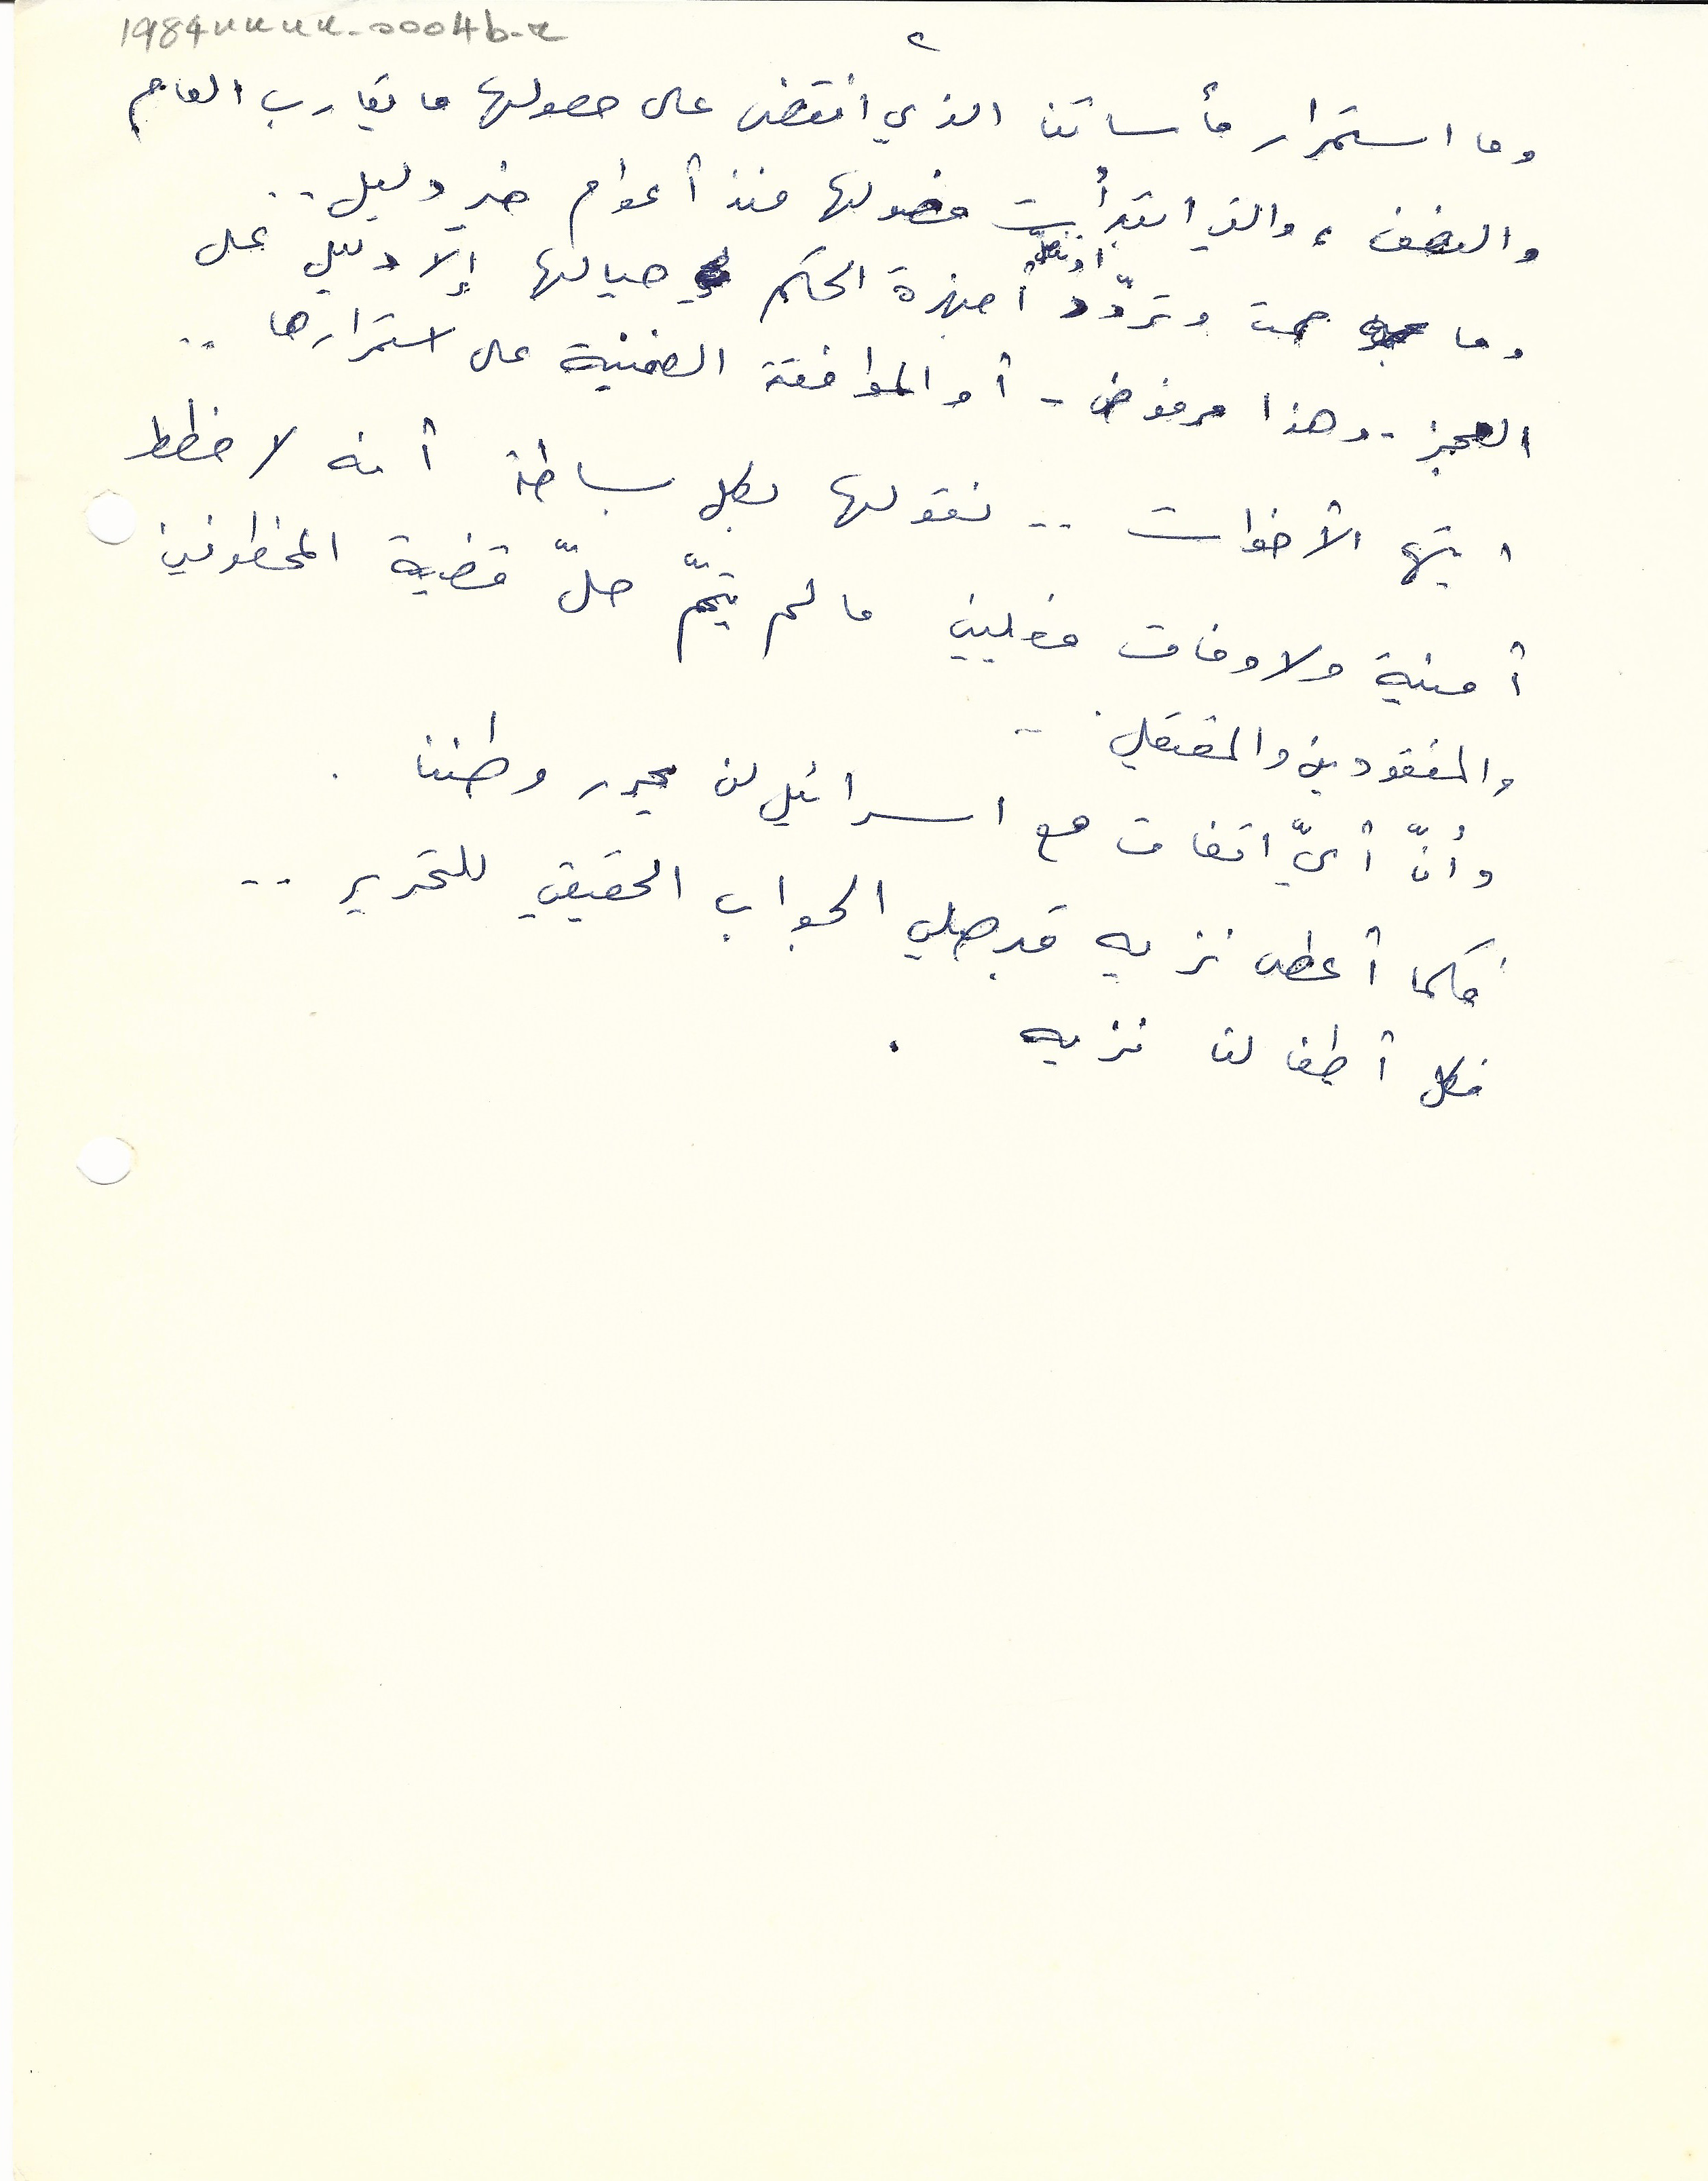 1984uuuu-0004b-r
٢
وما استمرار مأساتنا الذي انقضى على حصولها ما يقارب العام
والنصف، والتي ابتدأت فصولها منذ أعوام خير دليل..
وما صمت وتردّد أجهزة الحكم حيالها إلا دليل على
العجز - وهذا مرفوض - أو الموافقة الضمنية على استمرارها ..
ايتها الأخوات .. نقولها بكل بساطة أنه لا خطط
أمنية ولا وفاق فعليين ما لم يتمّ حلّ قضية المخطوفين
والمفقودين والمعتقلين ..
وأنّ أيّ اتفاق مع اسرائيل لن يحرر وطننا .
فكما أعطى نزيه قبرصلي الجواب الحقيقي للتحرير ..
فكل أطفالنا نزيه .